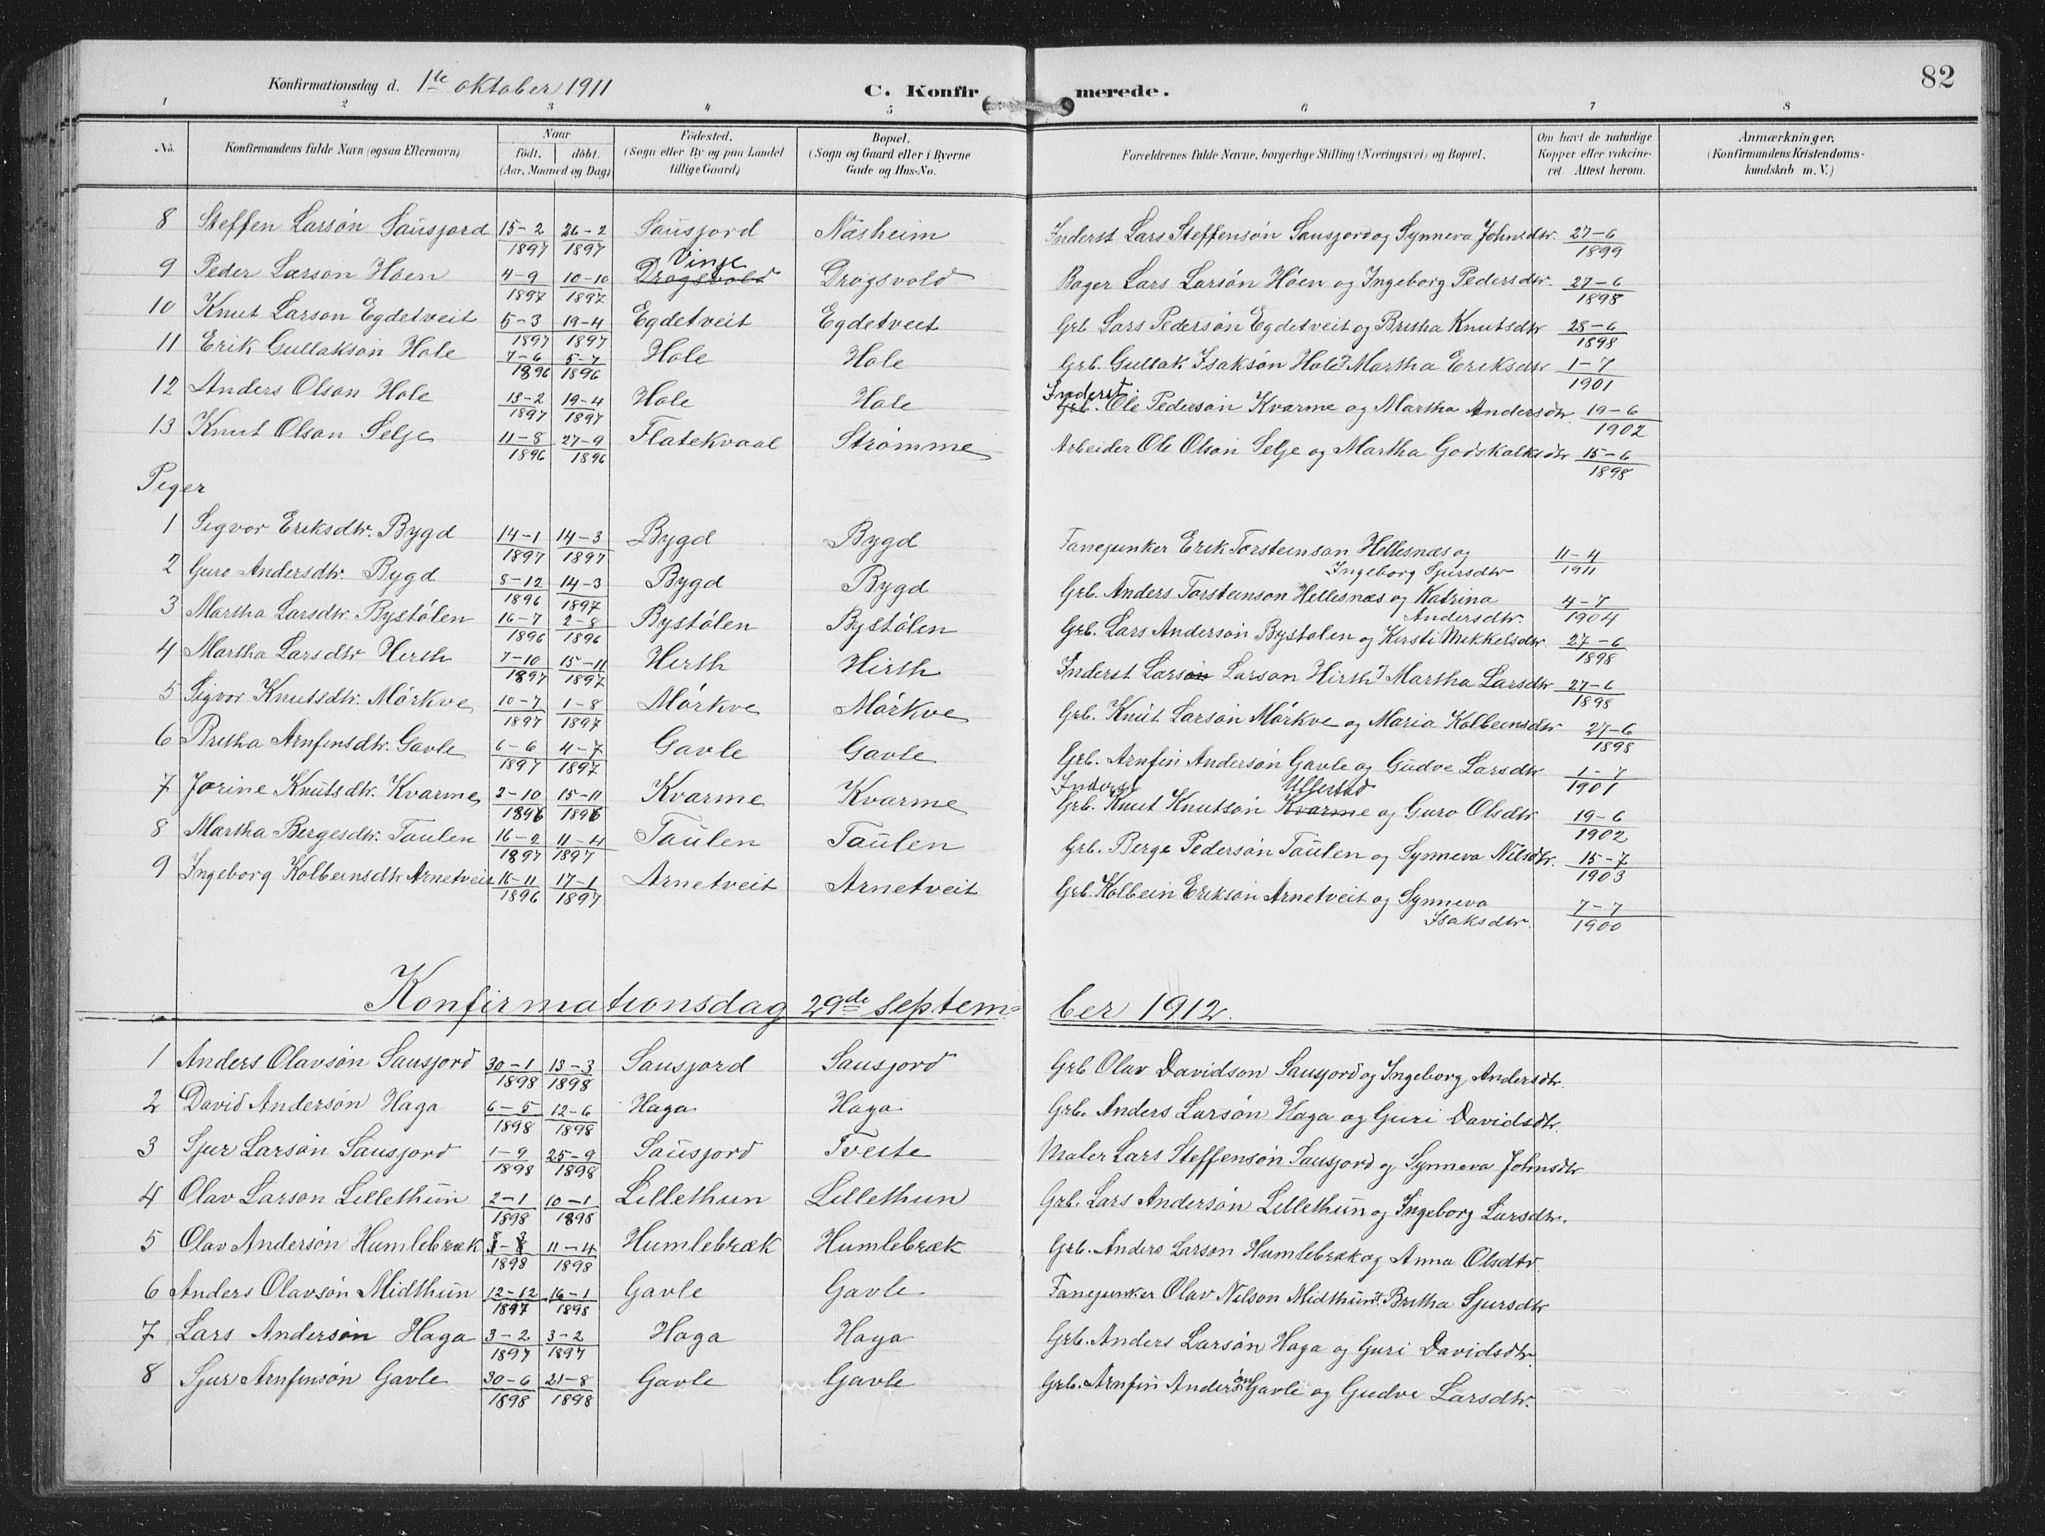 82
Konfirmationsdag d. 1ste oktober 1911 C. Konfirmerede.
1 2 3 4 5 6 7 8
No. Konfirmandens fulde Navn (ogsaa Efternavn) Naar født. døbt. (Aar, Maaned og Dag) Födested. (Sogn eller By og paa Landet tillige Gaard) Bopæl. (Sogn og Gaard eller i Byerne Gade og Hus-No. Forældrenes fulde Navne, borgerlige Stilling (Næringsvei) og Bopæl. Om havt de naturlige Kopper eller vakcineret. Attest herom. Anmærkninger. (Konfirmandens Kristendomskundskab m. V.)
8 Steffen Larsøn Sausjord 15-2 1897 26-2 1897 Sausjord Næsheim Inderst Lars Steffensøn Sausjord og Synneva Johnsdtr. 27-6 1899
9 Peder Larson Høen 4-9 1897 10-10 1897 Vinje Drøgsvold Drøgsvold Bager Lars Larsøn Høen og Ingeborg Pedersdtr. 27-6 1898
10 Knut Larson Egdetveit 5-3 1897 19-4 1897 Egdetveit Egdetveit Grb. Lars Pedersøn Egdetveit og Britha Knutsdtr 28-6 1898
11 Erik Gullaksøn Hole 7-6 1896 5-7 1896 Hole Hole Grb. Gullak Isaksøn Hole & Martha Eriksdtr 1-7 1901
12 Anders Olson Hole 13-2 1897 19-4 1897 Hole Hole Inderst Grb. Ole Pedersøn Kvarme og Martha Andersdtr 19-6 1902
13 Knut Olson Selje 11-8 1896 27-9 1896 Flatekvaal Strømme Arbeider Ole Olson Selje og Martha Godskalksdtr 15-6 1898
Piger
1 Sigvor Eriksdtr. Bygd 14-1 1897 14-3 1897 Bygd Bygd Fanejunker Erik Torsteinson Hellesnæs og Ingeborg Sjursdtr 11-4 1911
2 Guro Andersdtr. Bygd 8-12 1896 14-3 1897 Bygd Bygd Grb. Anders Torsteinson Hellesnæs og Katrina Andersdtr. 4-7 1904
3 Martha Larsdtr. Bystølen 16-7 1896 2-8 1896 Bystølen Bystølen Grb. Lars Andersøn Bystølen og Kirsti Mikkelsdtr 27-6 1898
4 Martha Larsdtr Hirth 7-10 1897 15-11 1897 Hirth Hirth Inderst Larsøn Larson Hirth & Martha Larsdtr 27-6 1898
5 Sigvor Knutsdtr. Mørkve 10-7 1897 1-8 1897 Mørkve Mørkve Grb. Knut Larsøn Mørkve og Maria Kolbeinsdtr 27-6 1898
6 Britha Arnfinsdtr. Gavle 6-6 1897 4-7 1897 Gavle Gavle Grb. Arnfin Andersøn Gavle og Gudve Larsdtr 1-7 1901
7 Jorine Knutsdtr. Kvarme 2-10 1896 15-11 1896 Kvarme Kvarme Inderst Ullestad Grb. Knut Knutsøn Kvarme og Guro Olsdtr. 19-6 1902
8 Martha Bergesdtr. Taulen 16-2 1897 11-4 1897 Taulen Taulen Grb. Berge Pedersøn Taulen og Synneva Nilsdtr. 15-7 1903
9 Ingeborg Kolbeinsdtr Arnetveit 16-11 1896 17-1 1897 Arnetveit Arnetveit Grb. Kolbein Eriksøn Arnetveit og Synneva Isaksdtr. 7-7 1900
Konfirmationsdag 29de september 1912.
1 Anders Olavsøn Sausjord 30-1 1898 13-3 1898 Sausjord Sausjord Grb Olav Davidson Sausjord og Ingeborg Andersdtr.
2 David Andersøn Haga 6-5 1898 12-6 1898 Haga Haga Grb. Anders Larsøn Haga og Guri Davidsdtr.
3 Sjur Larsøn Sausjord 1-9 1898 25-9 1898 Sausjord Tveite Maler Lars Steffensøn Sausjord og Synneva Johnsdtr
4 Olav Larson Lillethun 2-1 1898 10-1 1898 Lillethun Lillethun Grb. Lars Andersøn Lillethun og Ingeborg Larsdtr.
5 Olav Andersøn Humlebræk 1898 11-4 1898 Humlebræk Humlebræk Grb. Anders Larson Humlebræk og Anna Olsdtr.
6 Anders Olavsøn Midthun 12-12 1897 16-1 1898 Gavle Gavle Fanejunker Olav Nilson Midthun & Britha Sjursdtr
7 Lars Andersøn Haga 3-2 1897 3-2 1897 Haga Haga Grb. Anders Larsøn Haga og Guri Davidsdtr.
8 Sjur Arnfinsøn Gavle 30-6 1898 21-8 1898 Gavle Gavle Grb. Arnfin Andersøn Gavle og Gudve Larsdtr.